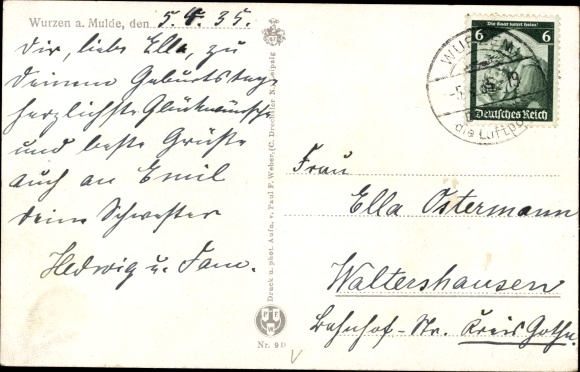 Wurzen a. Mulde, den 5. 4. 35.
Dir, liebe Ella, zu
Deinem Geburtstage
herzlichste Glückwünsche
und beste Grüße
auch an Emil
Deine Schwester
Hedwig u. Fam.
Druck u. phot. Aufn. v. Paul F. Weber, (C. Drechsler N.) Leipzig
PFW
Nr. 9 D
Die Saar kehrt heim!
6 6
Deutsches Reich
WURZEN
-5. 35 19
die Luftpo
Frau
Ella Ostermann
Waltershausen
Bahnhof-Str. Kreis Gotha.